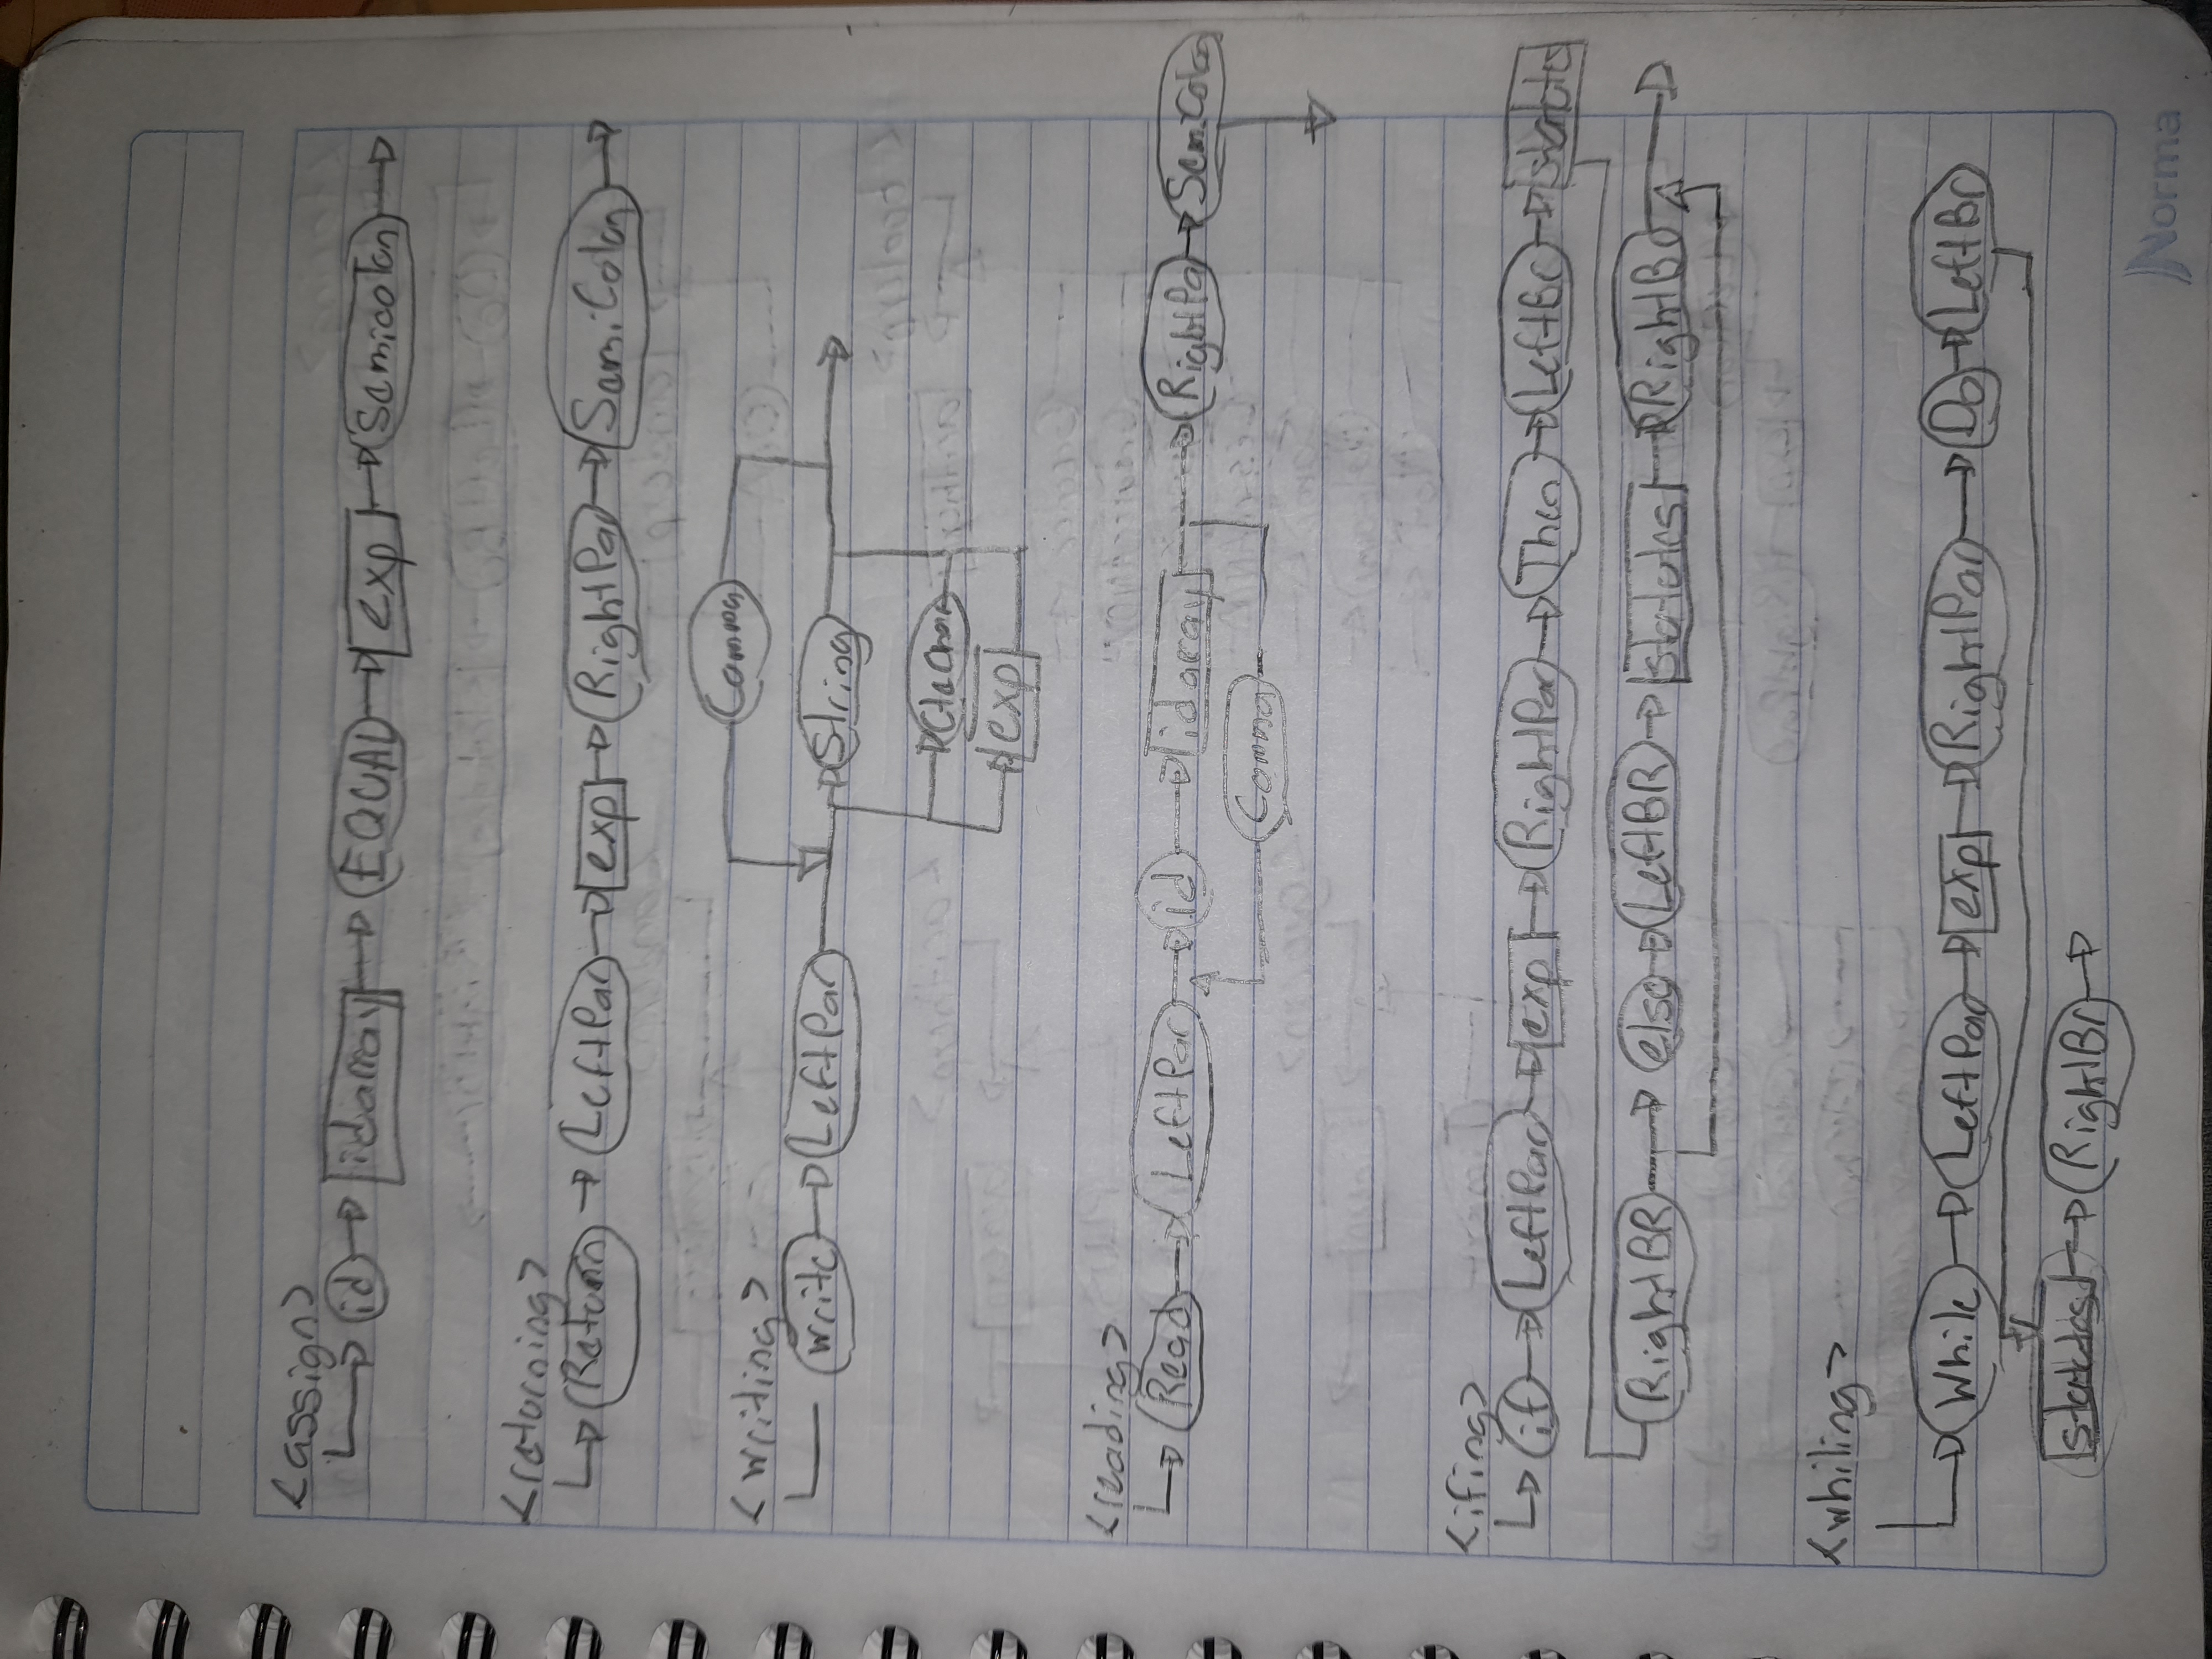 <assign>
id idarray EQUAL exp Semicolon
<returning>
Return LeftPar exp RightPar SemiColon
Comma
<writing>
write LeftPar String
CteChar
exp
<reading>
Read LeftPar id idarray RightPar SemiColon
Comma
<ifing>
if LeftPar exp RightPar Then LeftBr
RightBR else LeftBR statutes RightBr
<whiling>
While LeftPar exp RightPar Do LeftBr
statutes RightBr
Norma